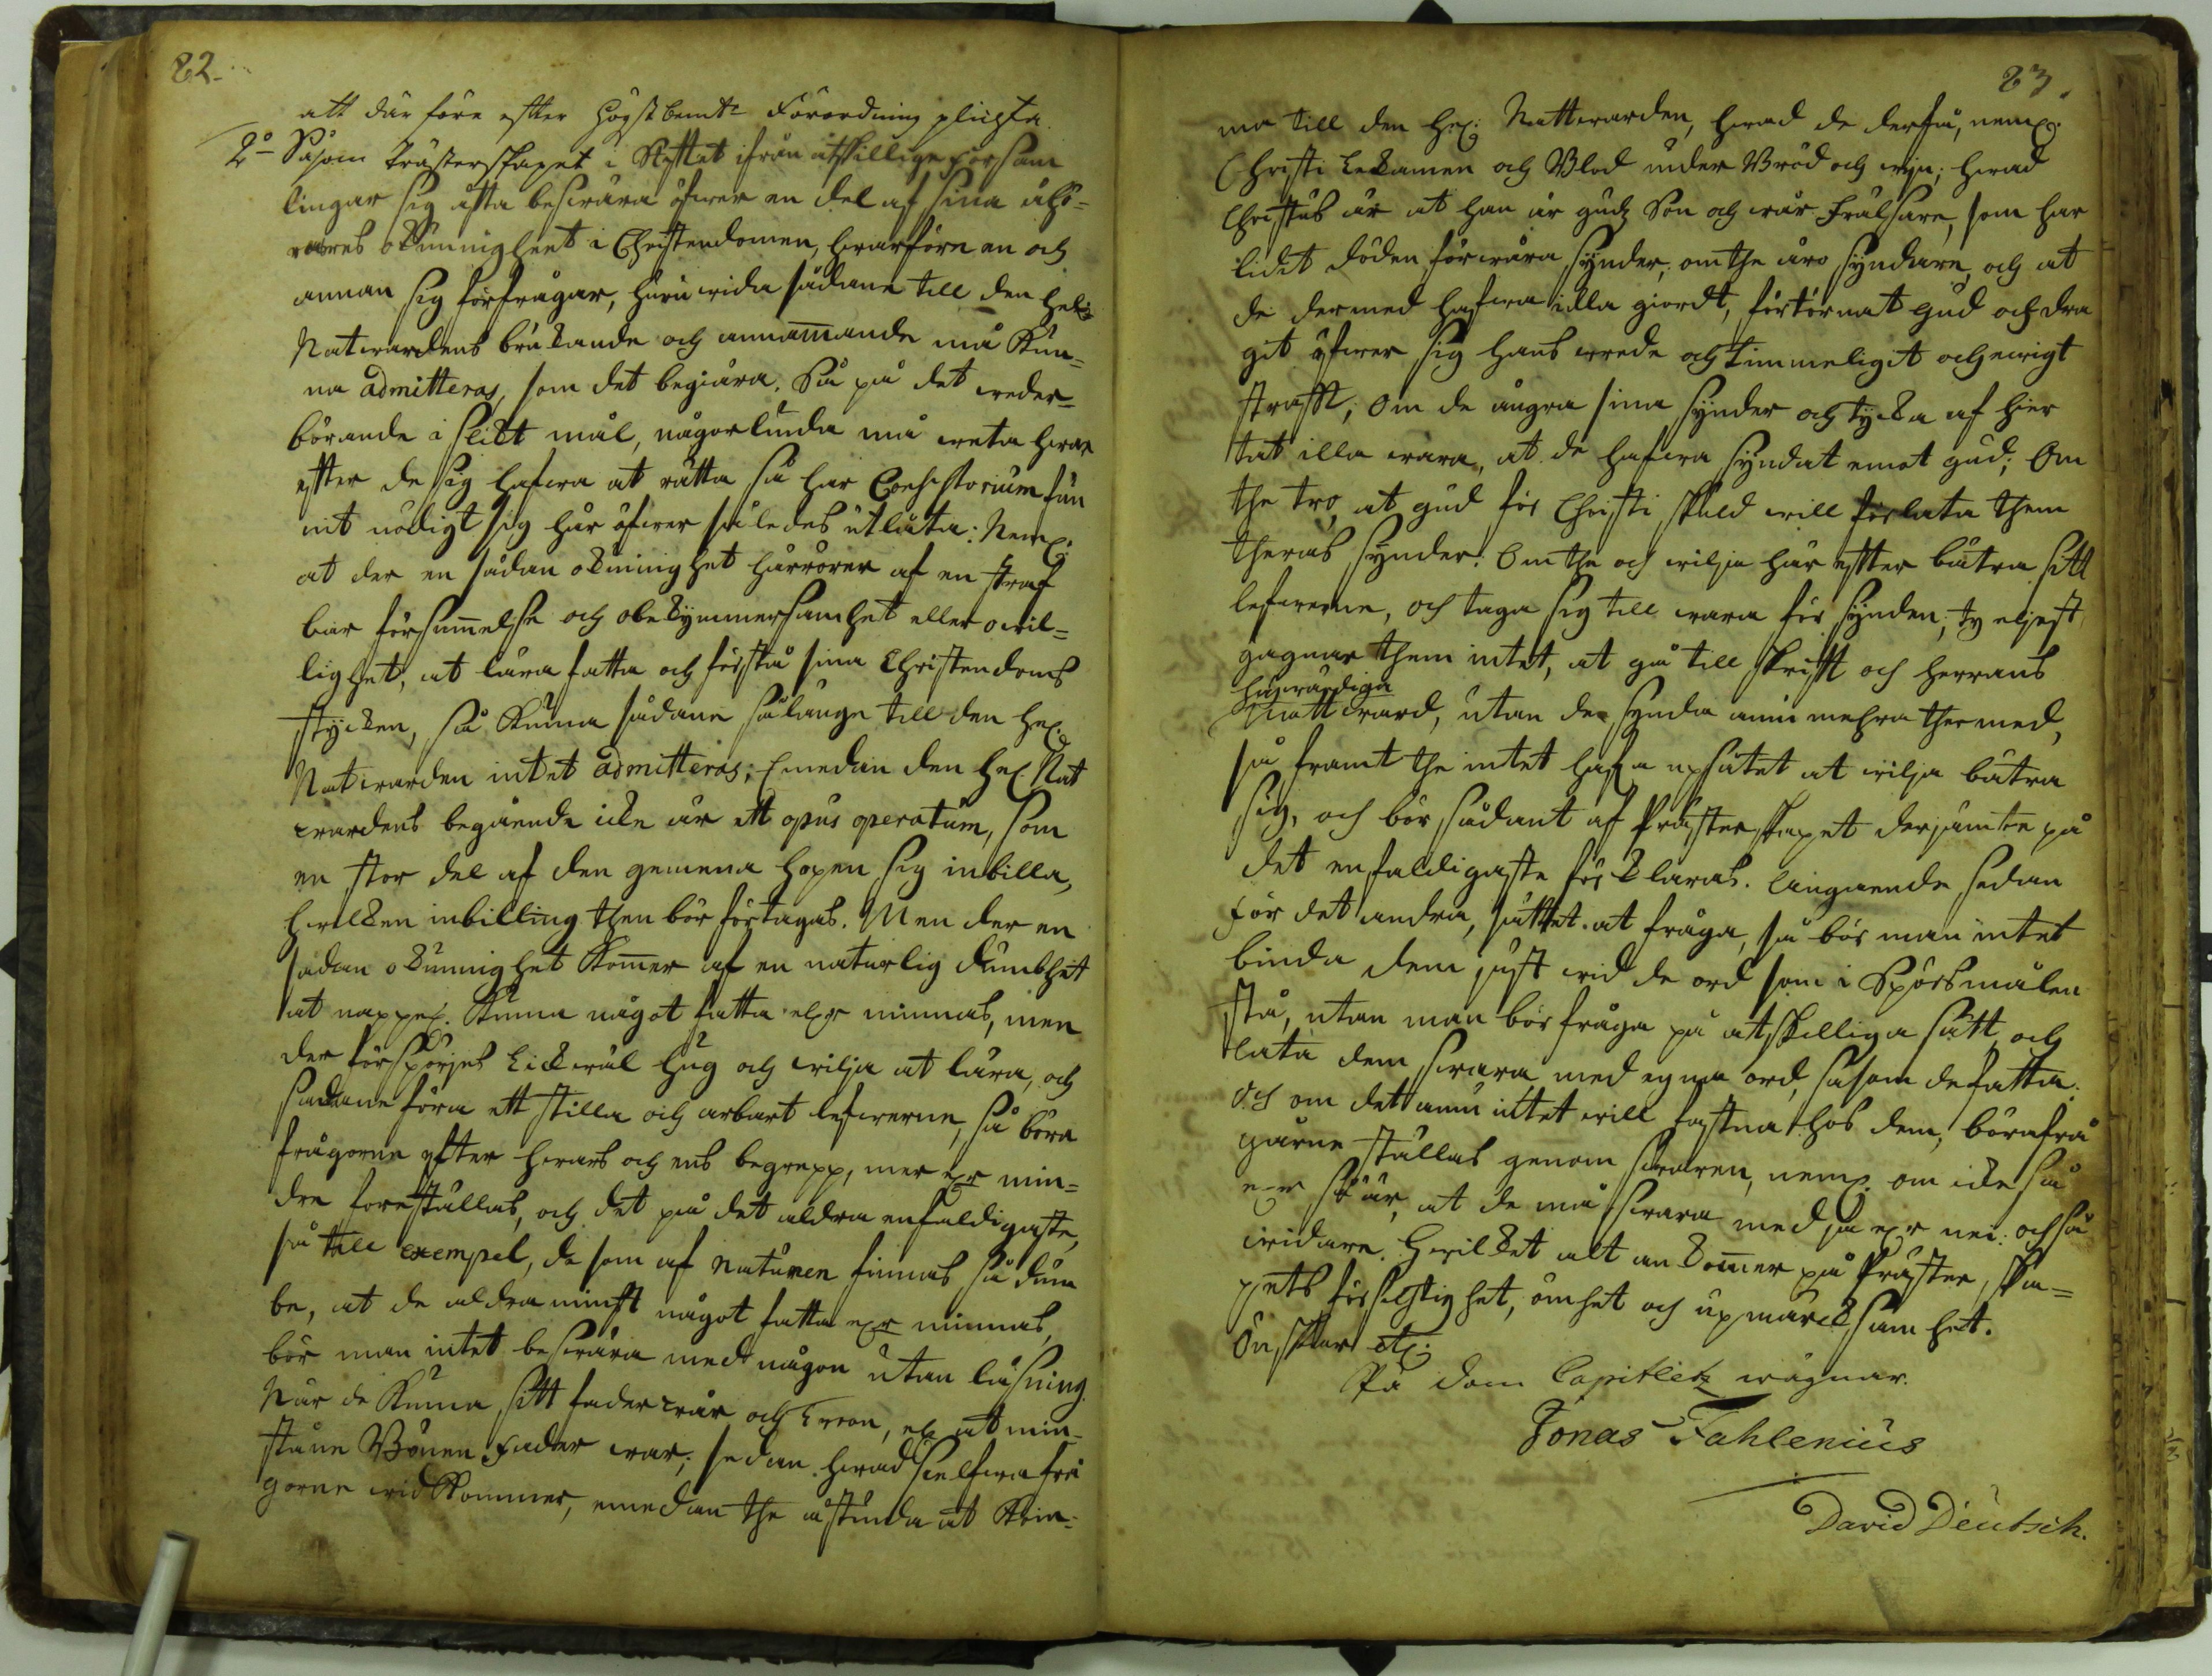 82.
att där före efter högstbemte Förordning plichta.
2o Såsom Prästerskapet i Stiftet ifrån åtskillige försam
lingar sig ofta beswära öfwer en del af sina åhö-
rares okunnigheet i Christendomen, hwarföre en och
annan sig förfrågar, huruwida sådane till den Hel:
Natwardens brukande och annammande må kun-
na admitteras, som det begiära. Så på det weder-
börande i slikt mål, någorlunda må weta hwar
efter de sig hafwa at rätta så har Consistorium fun
nit nödigt sig här öfwer således utlåta: Neml.
at der en sådan okuninghet härrörer af en straf
bar försummelse och obekymmersamhet eller owil-
lighet, at lära fatta och förstå sina Christendoms
stycken, så kunna sådane så länge till den Hel.
Natwarden intet admitteras; Emedan den Hel. Nat
wardens begående icke är ett opus operatum, som
en stor del af den gemena hopen sig inbilla,
hwilken inbilling them bör förtagas. Men der en
sådan okunnighet kommer af en naturlig dumbhet
at nappel. kunna något fatta eller minnas, men
der försporjes lickwäl hug och wilja at lära, och
sådane föra ett stilla och ärbart lefwerne, så böra
frågorne efter hwars och ens begrepp, mer eller min-
dre föreställas, och det på det aldra enfaldigaste,
så till exempel, de som af naturen finnas så dum
be, at de aldraminst något fatta eller minnas,
bör man intet beswära med någon utan läsning.
När de kunna sitt fader wår och Tron, el. åt min-
stone Bönen Fader wår; sedan hwad sielfwa frå
gorne wid kommer, emedan the åstunda at kom-
83.
ma till den Hel: Nattwarden, hwad de der få, neml.
Christi Lekamen och Blod under Bröd och wijn; hwad
Christus är at han är gudz Son och wår Frälsare, som har
lidit döden för wåra synder; om the äro syndare, och at
de dermed hafwa illa giordt, förtörnat gud och dra
git öfwer sig hans wrede och timmeligit och ewigt
straff; Om de ångra sina synder och tycka af hier
tat illa wara, at de hafwa syndat emot gud; Om
the tro, at gud för Christi skuld will förlata them
theras synder. Om the och wilja här efter bätra sitt
lefwerne, och taga sig till wara för synden; ty eljest
gagnar them intet, at gå till skrifft och herrans
högwärdiga
Nattward, utan de synda ännu mehra thermed,
så framt the intet hafa upsåtet at wilja bätra
sig, och bör sådant af Prästerskapet derjämte på
det enfaldigaste förklaras. Angående sedan
för det andra, sättet at fråga, så bör man intet
binda dem just wid de ord som i Spörsmålen
stå, utan man bör fråga på åtskilliga sätt och
låta dem swara med egna ord, såsom de fatta.
Och om det ännu intet will fastna hos dem, böra frå
gorne ställas genom swaren, neml. om icke så
eller så är, at de må swara med ja eller nei: och så
widare. Hwilket alt ankommer på Prästerska-
pets försichtighet, ömhet och upmärksamhet.
Önskar etc.
På dom Capitletz wägnar.
Jonas Fahlenius
David Deutsch.